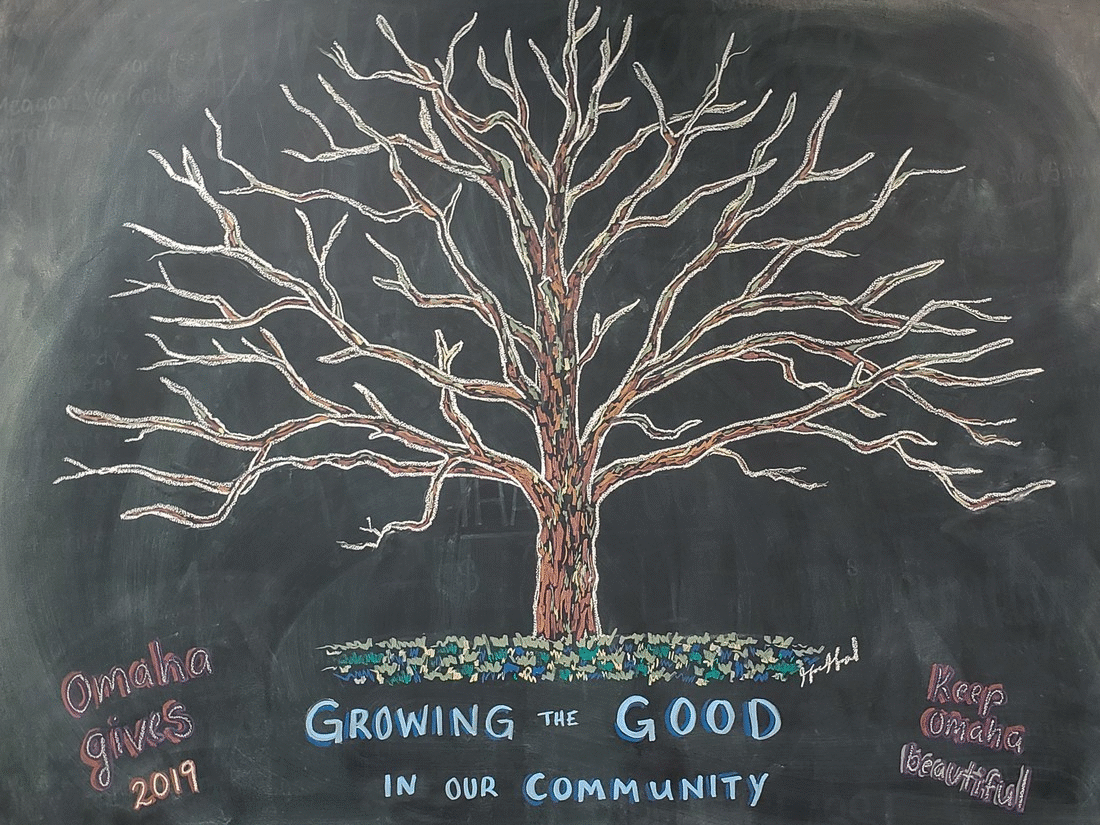 Omaha
gives
2019
GROWING THE GOOD
IN OUR COMMUNITY
Keep
Omaha
beautiful